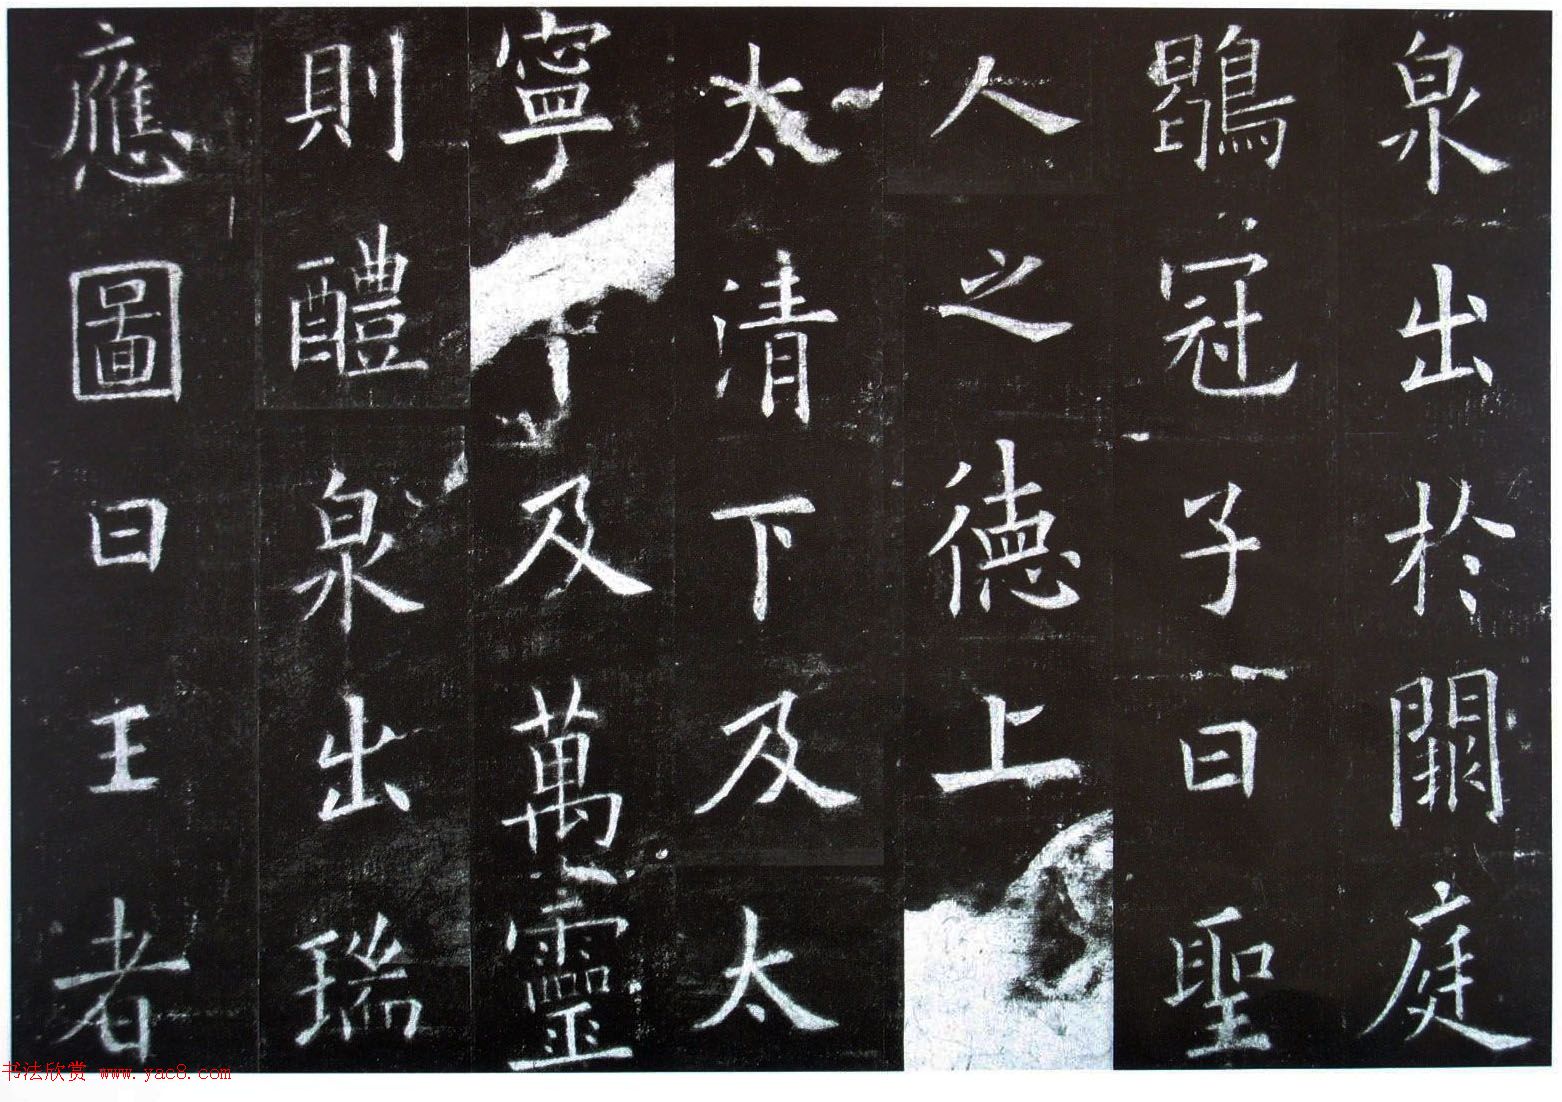 泉出於闕庭
鶡冠子曰聖
人之德上
太清下及太
寧下及萬靈
則醴泉出瑞
應圖曰王者
书法欣赏 www.yac8.com